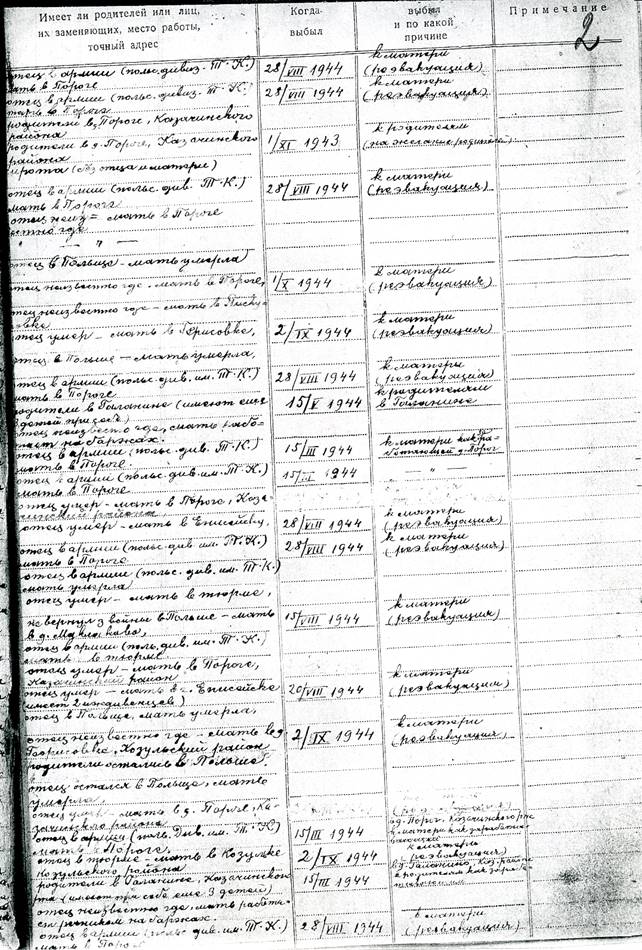 Имеет ли родителей или лиц,
их заменяющих, место работы,
точный адрес
Когда
выбыл
выбыл
и по какой
причине
Примечание
2
отец в армии (польс. дивиз. Т. К.)
мать в Пороге
28/VIII 1944
к матери
(реэвакуация)
отец в армии (польс. дивиз. Т. К.)
мать в Пороге
28/VIII 1944
к матери
(реэвакуация)
родители в д. Пороге, Казачинского
района
родители в д. Пороге, Казачинского
района
1/XI 1943
к родителям
(на желание родителей)
сирота (без отца и матери)
отец в армии (польс. див. Т. К.)
мать в Пороге
28/VIII 1944
к матери
(реэвакуация)
отец неиз= мать в Пороге
вестно где
— " —
отец в Польще - мать умерла)
отец неизвестно где - мать в Пороге,
1/X 1944
к матери
(реэвакуация)
отец неизвестно где - мать в
отец умер - мать в Герисовке,
2/IX 1944
к матери
(реэвакуация)
отец в Польше - мать умерла,
отец в армии (польс. див. им. Т. К.)
мать в Пороге
28/VIII 1944
к матери
(реэвакуация)
родители в Галанине (имеют еще
детей при себе)
15/V 1944
к родителям
в Галанине
отец неизвестно где, мать рабо-
тает на баржах.
отец в армии (польс. див. Т. К.)
мать в Пороге
15/III 1944
к матери как
д. Порог
отец в армии (польс. див. им. Т. К.)
мать в Пороге
15/III 1944
"
отец умер - мать в Пороге, Каза-
чинский района
отец умер - мать в Енисейску,
28/VIII 1944
к матери
(реэвакуация)
отец в армии (польс. див. им. Т. К.)
мать в Пороге
28/VIII 1944
к матери
(реэвакуация)
отец в армии (польс. див. им. Т. К.)
мать умерла
отец умер - мать в тюрме,
не вернул з войны в Польше - мать
в д. Маклаково,
15/VIII 1944
к матери
(реэвакуация)
отец в армии (поль. див. им. Т. К.)
мать в тюрме
отец умер - мать в Пороге,
Казачинский район
отец умер - мать в г. Енисейске
(имеет 2 иждивенцев)
20/VIII 1944
к матери
(реэвакуация)
отец в Польще, мать умерла,
отец неизвестно где - мать в д
Герисовке, Козульский район
2/IX 1944
к матери
(реэвакуация)
родители остались в Польше.
отец остался в Польще, мать
умерла
отец умер - мать в д. Пороге, Ка-
зачинского района
отец в армии (поль. Див. им. Т. К)
мать в Пороге,
15/III 1944
в д. Порог, Казачинского р-на
к матери как
отец в тюрме - мать в Козульке
Козульского района
2/IX 1944
к матери
реэвакуация)
родители в Галанине, Казачинског
р-на (имеют при себе еще 3 детей)
15/III 1944
в д. Галанино, Каз. района
к родителям как
отец неизвестно где, мать работа-
ет на баржах.
отец в армии (польс. див. им. Т. К.)
мать в Пороге
28/VIII 1944
к матери
(реэвакуация)